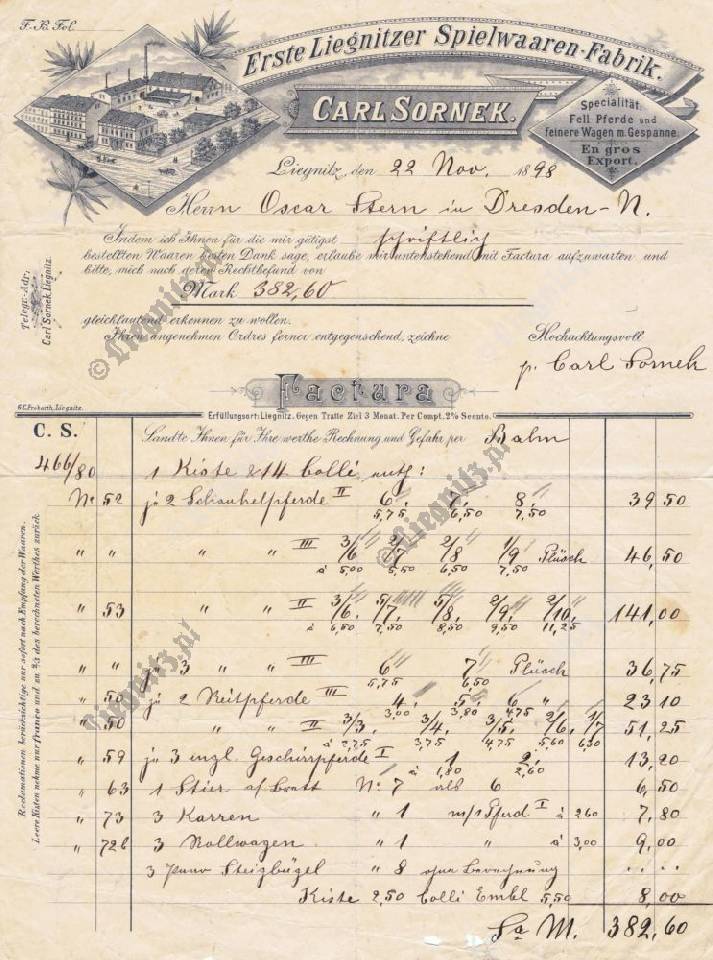 F. B. Fol.
Erste Liegnitzer Spielwaaren-Fabrik.
CARL SORNEK.
Specialität
Fell Pferde und
feinere Wagen m. Gespanne.
En gros
Export.
Liegnitz, den 22 Nov. 1898
Herrn Oscar Stern in Dresden-N.
Indem ich Ihnen für die mir gütigst schriftlich
bestellten Waaren besten Dank sage, erlaube mir untenstehend mit Factura aufzuwarten und
bitte, mich nach deren Rechtbefund von
Mark 382,60
gleichlautend erkennen zu wollen.
Ihren angenehmen Ordres ferner entgegensehend, zeichne Hochachtungsvoll
p. Carl Sornek
Telegr.-Adr.
Carl Sornek, Liegnitz.
Factura
Liegnitz.
Erfüllungsort: Liegnitz. Gegen Tratte Ziel 3 Monat. Per Compt. 2% Sconto.
C. S. Sandte Ihnen für Ihre werthe Rechnung und Gefahr per Bahn
466/80 1 Kiste & 14 Colli, enth:
No 52 je 2 Schaukelpferde II 6 7 8 39 50
5,75 6,50 7,50
" " " " III 3/6 2/7 2/8 1/9 Plüsch 46,50
à 5,00 5,50 6,50 7,50
" 53 " " II 3/6 5/7 5/8 2/9 2/10 141,00
à 6,50 7,50 8,50 9,50 11,25
" " je 3 " " III 6 7 Plüsch 36,75
5,75 6,50
" 50 je 2 Reitpferde III 4 5 6 " 23 10
3,00 3,80 4,75
" 50 " " II 3/3 3/4 3/5 2/6 1/7 51,25
à 2,75 3,75 4,75 5,60 6,30
" 59 je 3 engl. Geschirrpferde I 1 2 13,20
à 1,80 2,60
" 63 1 Stier a/Brett No 7 als 6 6,50
" 73 3 Karren " 1 m/1 Pferd I à 2 60 7,80
" 72b 3 Rollwagen " 1 " à 3,00 9,00
3 Paar Steigbügel " 8 ohne Berechnung
Kiste 2,50 Colli Embl 5,50 8,00
Sa M. 382,60
Reclamationen berücksichtige nur sofort nach Empfang der Waaren.
Leere Kisten nehme nur franco und zu 2/3 des berechneten Werthes zurück.
© Liegnitz.pl
© Liegnitz.pl
Liegnitz.pl